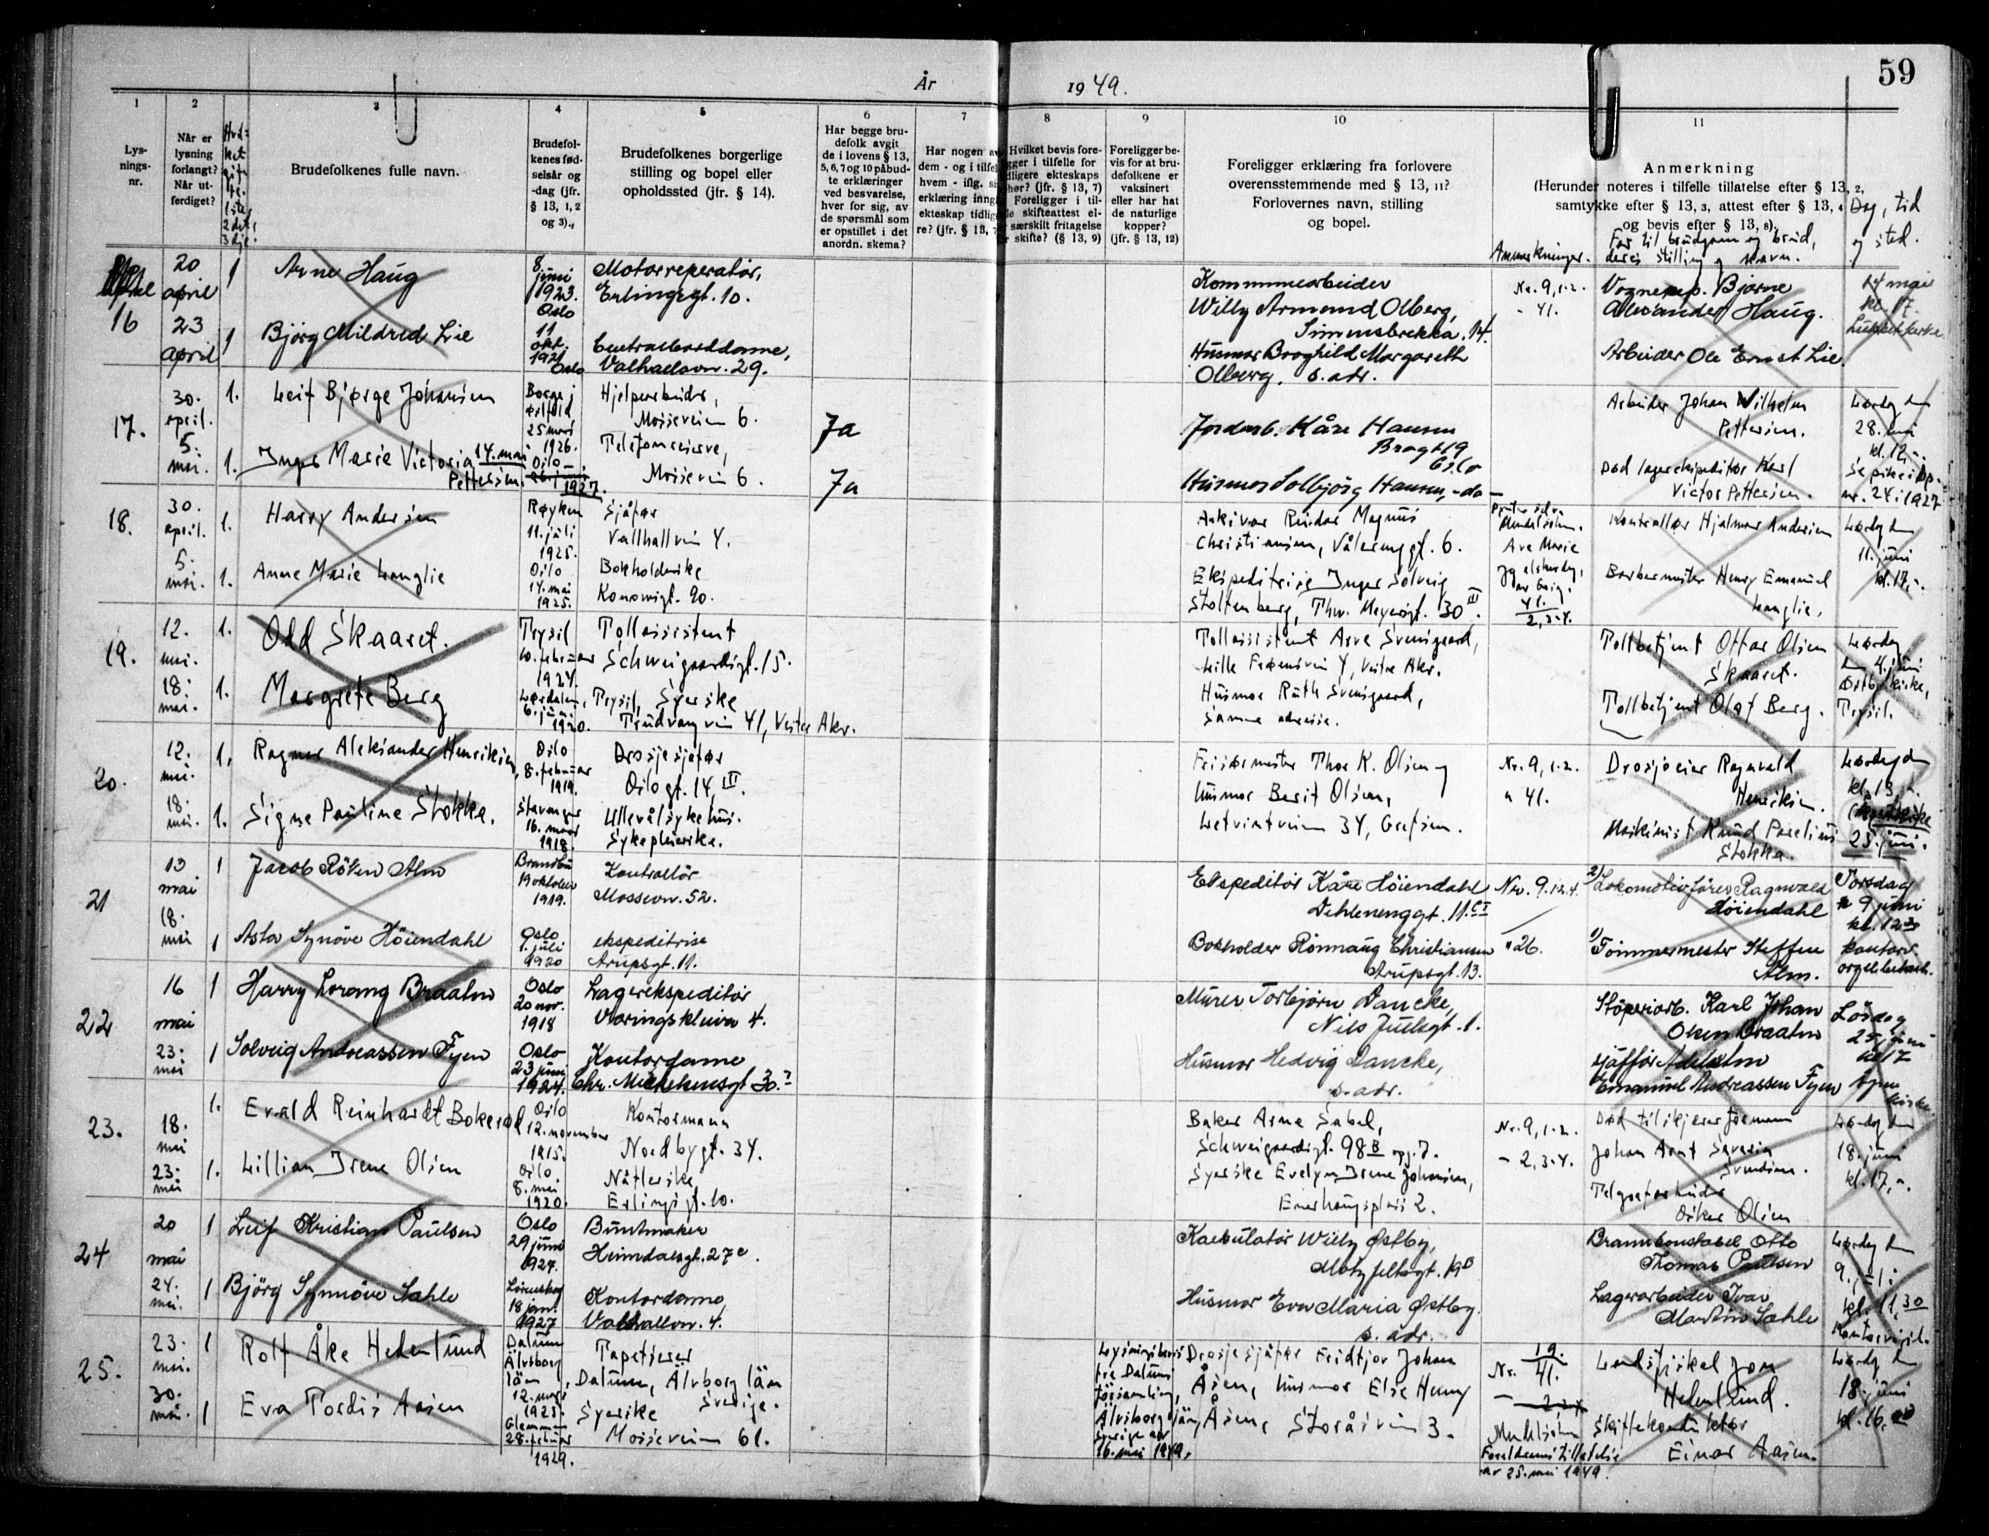 59
År
19 49.
1
2
3
4
5
6
7
8
9
10
11
Lys-
nings-
nr.
Når er
lysning
forlangt?
Når ut-
ferdiget?
Brudefolkenes fulle navn.
Brudefol-
kenes fød-
selsår og
-dag (jfr.
§ 13, 1, 2
og 3).,
Brudefolkenes borgerlige
stilling og bopel eller
opholdssted (jfr. § 14).
Har begge bru-
defolk avgit
de i lovens § 13,
5, 6, 7 og 10 påbud-
te erklæringer
ved besvarelse,
hver for sig, av
de spørsmål som
er opstillet i det
anordn. skema?
Har nogen
dem - og i tilfel
hvem - iflg. s
erklæring inng
ekteskap tidlig
re? (jfr. § 13, 7
Hvilket bevis fore-
gger i tilfelle for
dligere ekteskaps
hør? (jfr. § 13, 7)
Foreligger i til-
le skifteattest el-
særskilt fritagelse
r skifte? (§ 13, 9)
Foreligger be-
vis for at bru-
defolkene er
vaksinert
eller har hat
de naturlige
kopper?
(jfr. § 13, 12)
Foreligger erklæring fra forlovere
overensstemmende med § 13, 11?
Forlovernes navn, stilling
og bopel.
Anmerkning
(Herunder noteres i tilfelle tillatelse efter § 13, 2,
samtykke efter § 13, 3, attest efter § 13, 4
og bevis efter § 13, 8).
Anmerkninger.
Far til brudgom og brud,
deres stilling og navn.
Dag, tid
og sted.
16
20
april
23
april
1
Arne Haug
8
juni
1923.
Oslo
Motorreperatør,
Erlingsgt. 10.
Kommunearbeider
Willy Armand Olberg,
Simensbrekka. 14.
Nr. 9, 1.2.
- 41.
Vognrep. Bjarne
Alexander Haug.
14 mai
kl. 17.
1
Bjørg Mildred Lie
11
okt.
1921
Oslo
Centralborddame,
Valhallavn. 29.
Husmor Borghild Margareth
Olberg, s. adr.
Arbeider Ole Ernst Lie.
17.
30.
april.
5.
mai.
1.
Leif Bjørge Johansen
Borge i
Østfold
25 mars
1926.
Hjelpearbeider,
Mosseveien 6.
Ja
Jordarb. Kåre Hansen
Bragt 19
Oslo
Arbeider Johan Wilhelm
Pettersen.
Lørdag den
28. mai
kl. 12,-.
1.
Inger Marie Victoria
Pettersen.
14. mai
Oslo
1927.
Telefonreiserve,
Mosseveien 6.
Ja
Husmor Solbjørg Hansen, -do-
Død lagerekspeditør Karl
Victor Pettersen.
nr. 24 i 1927
18.
30.
april.
5.
mai.
1.
Harry Andersen
Røyken
11. juli
1925.
Sjåfør
Vallhallveien 4.
Arkivar Reidar Magnus
Christiansen, Vålerenggt. 6.
Ave Maria
Jeg elsker deg,
av Grieg.
41.
2, 3-4.
Kontrollør Hjalmar Andersen
Lørdag den
11. juni
kl. 17,-.
1.
Anne Marie Langlie
Oslo
14. mai
1925.
Bokholderske
Konowsgt. 20.
Ekspeditrise Inger Solveig
Stoltenberg, Thv. Meyersgt. 30 III.
Barbermester Henry Emanuel
Langlie.
19.
12.
mai.
18.
mai.
1.
Odd Skaaret.
Trysil
10. februar
1924.
Tollassistent
Schweigaardsgt. 15.
Tollassistent Arve Svensgaard,
Lille Frøensvei 4, Vestre Aker.
Tollbetjent Ottar Olsen
Skaaret.
Lørdag
den 4. juni
Østby kirke,
Trysil.
1.
Margrete Berg
6. juni
1920.
Trysil, Syerske
Trudvangveien 41, Vestre Aker.
Husmor Ruth Svensgaard,
samme adresse.
Tollbetjent Olaf Berg.
20.
12.
mai.
18.
mai.
1.
Ragnar Aleksander Henriksen,
Oslo
8. februar
1919.
Drosjesjåfør
Oslogt. 14, III.
Frisørmester Thor K. Olsen og
husmor Berit Olsen,
Lettvintveien 34, Grefsen.
Nr. 9, 1-2.
" 41.
Drosjeeier Ragnvald
Henriksen.
Lørdag den
kl. 13,-.
25. juni.
1.
Signe Pauline Stokka.
Stavanger
16. mars
1918.
Ullevål sykehus.
Sykepleierske.
Maskinist Knud Parelius
Stokka.
21
13
mai
18.
mai
1
Jacob Røken Alm
Brandbu
19 oktober
1919.
Kontrollør
Mossevn. 52.
Ekspeditør Kåre Høiendahl
Dehlenenggt. 11.
Nr. 9. 1.2.4.
2) Lokomotivfører Ragnvald
Høiendahl
Torsdag
9 juni
kl. 12 30
1
Asta Synøve Høiendahl
Oslo
1. juli
1920
ekspeditrise
Arupsgt. 11.
Bokholder Rønnaug Christiansen
Arupsgt. 13.
" 26.
1) Tømmermester Steffen
Alm.
kantor.
22
16
mai
23.
mai
1
Harry Lorang Braaten
Oslo
20 nov.
1918
Lagerekspeditør
Væringskleiva 4.
Murer Torbjørn Dancke,
Nils Juelsgt. 1.
Støperiarb. Karl Johan
Olsen Braaten
Lørdag
25 juni
kl 17
1
Solveig Andreassen Fyen
Oslo
23 juni
1924.
Kontordame
Chr. Michelsensgt 30.
Husmor Hedvig Dancke,
s. adr.
sjåffør Adelsten
Emanuel Andreassen Fyen
23.
18.
mai
23.
mai
1.
Evald Reinhardt Bokerød
Oslo
12. november
1915.
Kontormann
Nordbygt. 34.
Baker Arne Sabel,
Schweigaardsgt. 98 B opg. 7.
Nr. 9, 1-2.
- 2, 3-4.
Død tilskjærer formann
Johan Arnt Severin
Svendsen.
Lørdag den
18. juni
kl. 17,-.
1.
Lillian Irene Olsen
Oslo
8. mai
1920.
Nåtlerske,
Erlingsgt. 10.
Syerske Evelyn Irene Johansen,
Enerhaugsplass 2.
Telegrafarbeider
Osker Olsen
24
20
mai
24.
mai.
1
Leif Kristian Paulsen
Oslo
29 juni
1924.
Buntmaker
Heimdalsgt. 27 c.
Kalkulatør Willy Østby,
Motzfeltsgt. 19 B
Brannkonstabel Otto
Thomas Paulsen
Lørdag den
9. juli
kl. 11,30
1
Bjørg Synnøve Sahle
Lørenskog
18 jan.
1927
Kontordame
Valhallavn. 4.
Husmor Eva Maria Østby.
s. adr.
Lagerarbeider Ivar
Martin Sahle
25.
23.
mai.
30.
mai.
1
Rolf Åke Hedenlund
Dalum
Älvsborg
län
12. mars
1925.
Tapetserer
Dalum, Älvborg län
Sverige.
Lysningsbevis
fra Dalums
församling,
Älvsborgs län,
Sverige av
16. mai 1949.
Drosjesjåfør Fridtjov Johan
Åsen, husmor Else Henny
Åsen, Storåsveien 3.
Nr. 19.
41.
Landsfiskal Jon
Hedenlund.
Lørdag, den
18. juni
kl. 16,00
1
Eva Tordis Aasen
Glemmen
28. februar
1929.
Syerske
Mosseveien 61.
Foreldrenes tillatelse
av 25. mai 1949.
Skiftekonduktør
Einar Aasen.